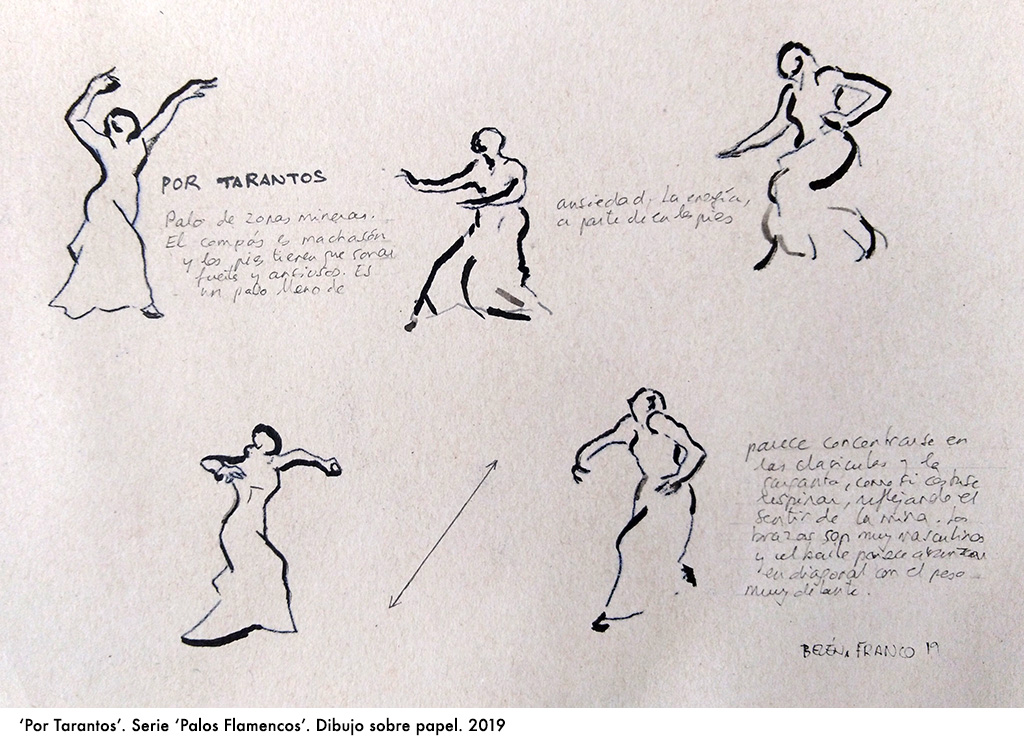 POR TARANTOS
Palo de zonas mineras.
El compás es machacón
y los pies tienen que sonar
fuerte y ansiosos. Es
un palo lleno de
ansiedad. La energía,
a parte de en los pies
parece concentrarse en
las clavículas y la
garganta, como si costase
respirar, reflejando el
sentir de la mina. Los
brazos son muy masculinos
y el baile parece avanzar
en diagonal con el peso
muy delante.
BELÉN FRANCO 19
‘Por Tarantos’. Serie ‘Palos Flamencos’. Dibujo sobre papel. 2019